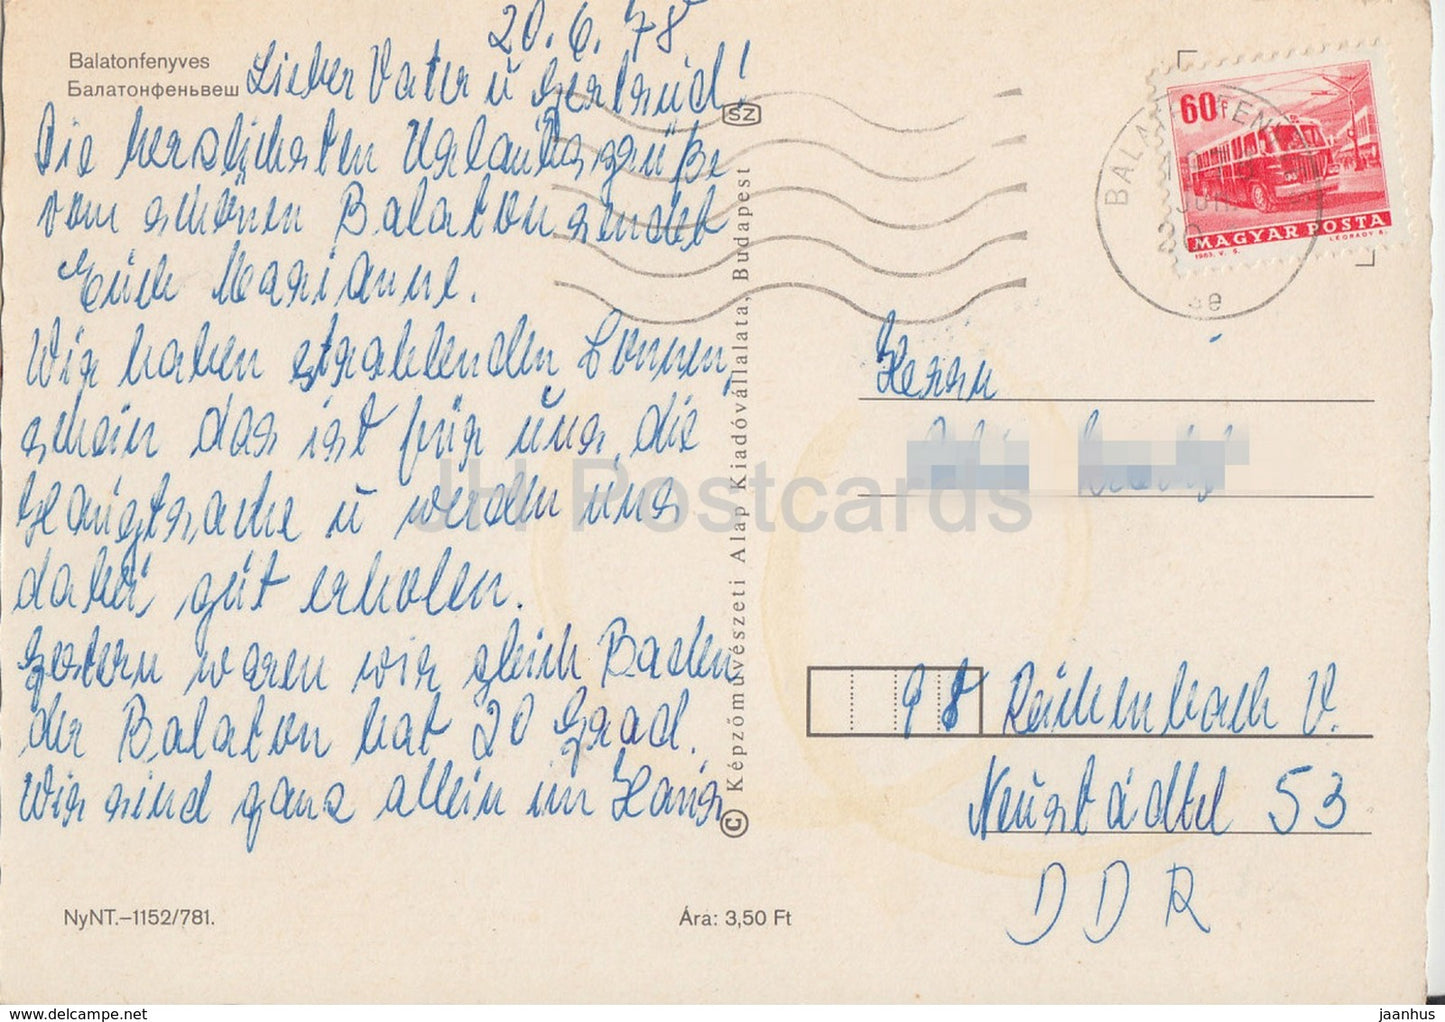 20.6.78
Balatonfenyves
Балатонфеньвеш
Lieber Vater u Gertrud!
Die herzlichsten Urlaubsgrüße
vom schönen Balaton sendet
Euch Marianne.
Wir haben strahlenden Sonnen,
schein das ist für uns, die
Hauptsache u werden uns
dabei gut erholen.
Gestern waren wir gleich Baden
der Balaton hat 20 Grad.
Wir sind ganz allein im Haus
NyNT.–1152/781.
Ára: 3,50 Ft
SZ
© Képzőművészeti Alap Kiadóvállalata, Budapest
60f
MAGYAR POSTA
1963. V. S.
LÉGRÁDY S.
Herrn
98 Reichenbach V.
Neustädtel 53
DDR
JH Postcards
https://www.delcampe.net
jaanhus